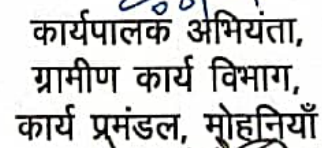 कार्यपालक अभियंता,
ग्रामीण कार्य विभाग,
कार्य प्रमंडल, मोहनियाँ